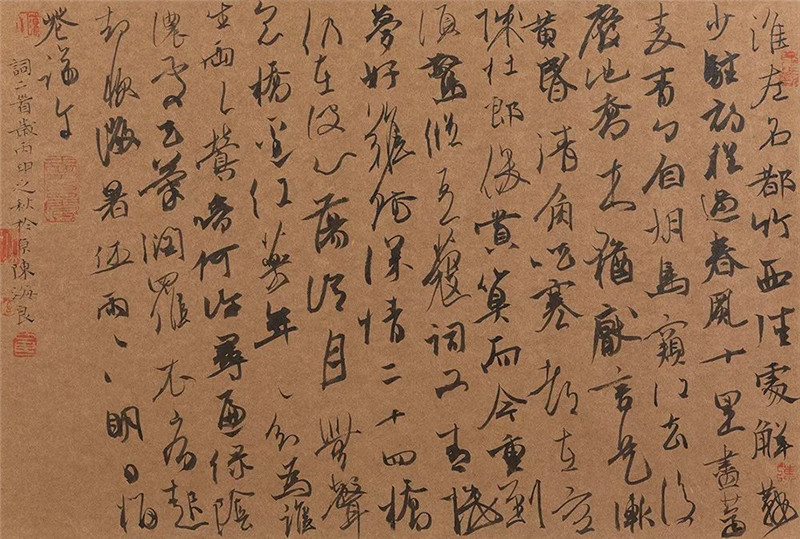 淮左名都竹西佳處解鞍
少駐初程過春風十里盡薺
麥青々自胡馬窺江去後
廢池喬木猶厭言兵漸
黃昏清角吹寒都在空
城杜郎俊賞算而今重到
須驚縱豆蔻詞工青樓
夢好難賦深情二十四橋
仍在波心蕩冷月無聲
念橋邊紅藥年々知為誰
生兩々鶯啼何許尋遍綠陰
濃處天氣潤羅衣病起
却忺微暑休雨々々明日榴
花端午
詞二首歲丙申之秋於京陳海良